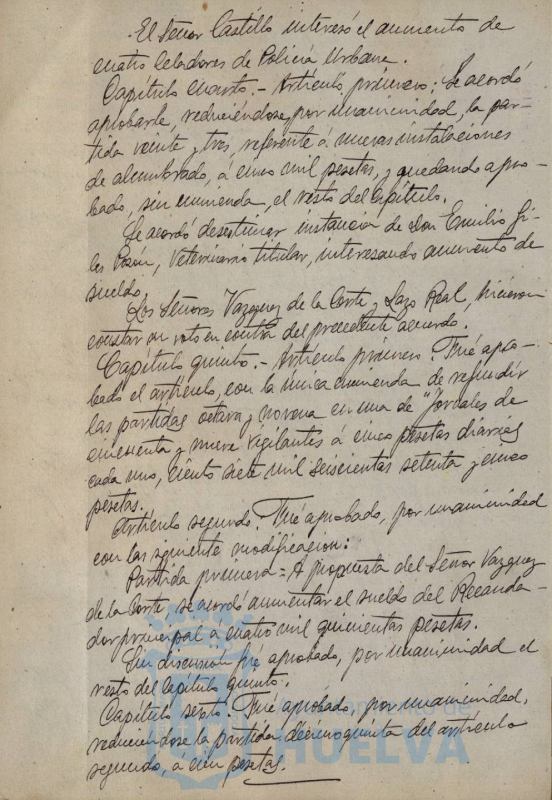 El Señor Castillo interesó el aumento de
cuatro Celadores de Policía Urbana.
Capítulo cuarto.- Artículo, primero: Se acordó
aprobarle, reduciéndose, por unanimidad, la par-
tida veinte y tres, referente á nuevas instalaciones
de alumbrado, á cinco mil pesetas, y quedando apro-
bado, sin enmienda, el resto del Capítulo.
Se acordó desestimar instancia de Don Emilio Gi-
les Pozón, Veterinario titular, interesando aumento de
sueldo.
Los Señores Vazquez de la Corte y Lazo Real, hicieron
constar su voto en contra del precedente acuerdo.
Capítulo quinto.- Artículo primero. Fué apro-
bado el artículo, con la única enmienda de refundir
las partidas octava y novena en una de "Jornales de
cincuenta y nueve vigilantes á cinco pesetas diarias
cada uno, ciento siete mil seiscientas setenta y cinco
pesetas.
Artículo segundo. Fué aprobado, por unanimidad
con las siguiente modificacion:
Partida primera = A propuesta del Señor Vazquez
de la Corte, se acordó aumentar el sueldo del Recauda-
dor principal á cuatro mil quinientas pesetas.
Sin discusión fué aprobado, por unanimidad el
resto del Capítulo quinto.
Capítulo sexto. Fué aprobado, por unanimidad,
reduciéndose la partida décimoquinta del artículo
segundo, á cien pesetas.
HUELVA